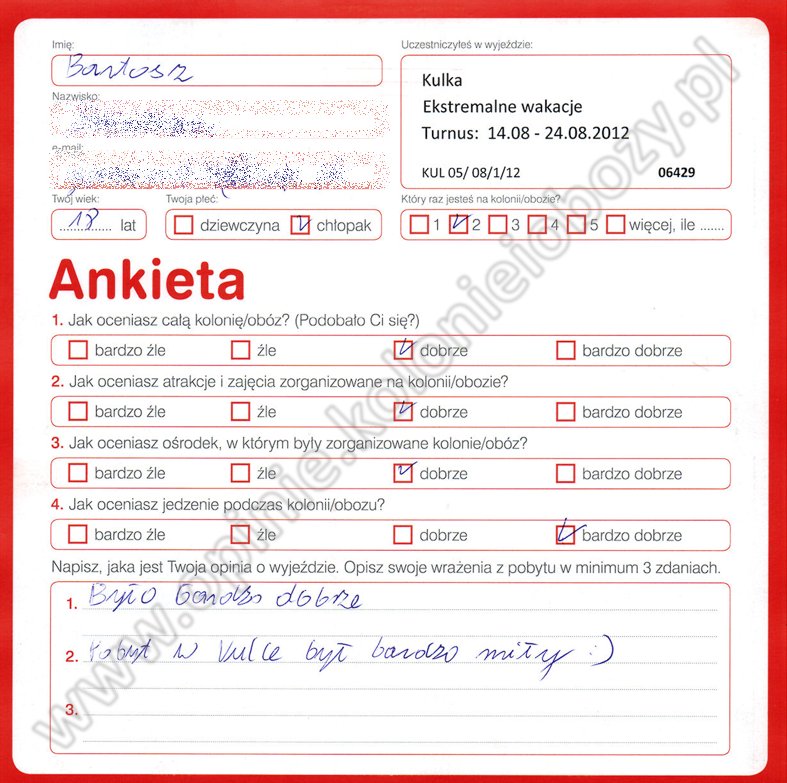 Imię:
Bartosz
Uczestniczyłeś w wyjeździe:
Kulka
Ekstremalne wakacje
Turnus: 14.08 - 24.08.2012
KUL 05/ 08/1/12 06429
Nazwisko:
e-mail:
Twój wiek:
18 lat
Twoja płeć:
dziewczyna chłopak
Który raz jesteś na kolonii/obozie?
1 2 3 4 5 więcej, ile .......
Ankieta
1. Jak oceniasz całą kolonię/obóz? (Podobało Ci się?)
bardzo źle źle dobrze bardzo dobrze
2. Jak oceniasz atrakcje i zajęcia zorganizowane na kolonii/obozie?
bardzo źle źle dobrze bardzo dobrze
3. Jak oceniasz ośrodek, w którym były zorganizowane kolonie/obóz?
bardzo źle źle dobrze bardzo dobrze
4. Jak oceniasz jedzenie podczas kolonii/obozu?
bardzo źle źle dobrze bardzo dobrze
Napisz, jaka jest Twoja opinia o wyjeździe. Opisz swoje wrażenia z pobytu w minimum 3 zdaniach.
1. Było bardzo dobrze
2. Pobyt w Kulce był bardzo miły :)
3.
www.opinie.kolonieiobozy.pl